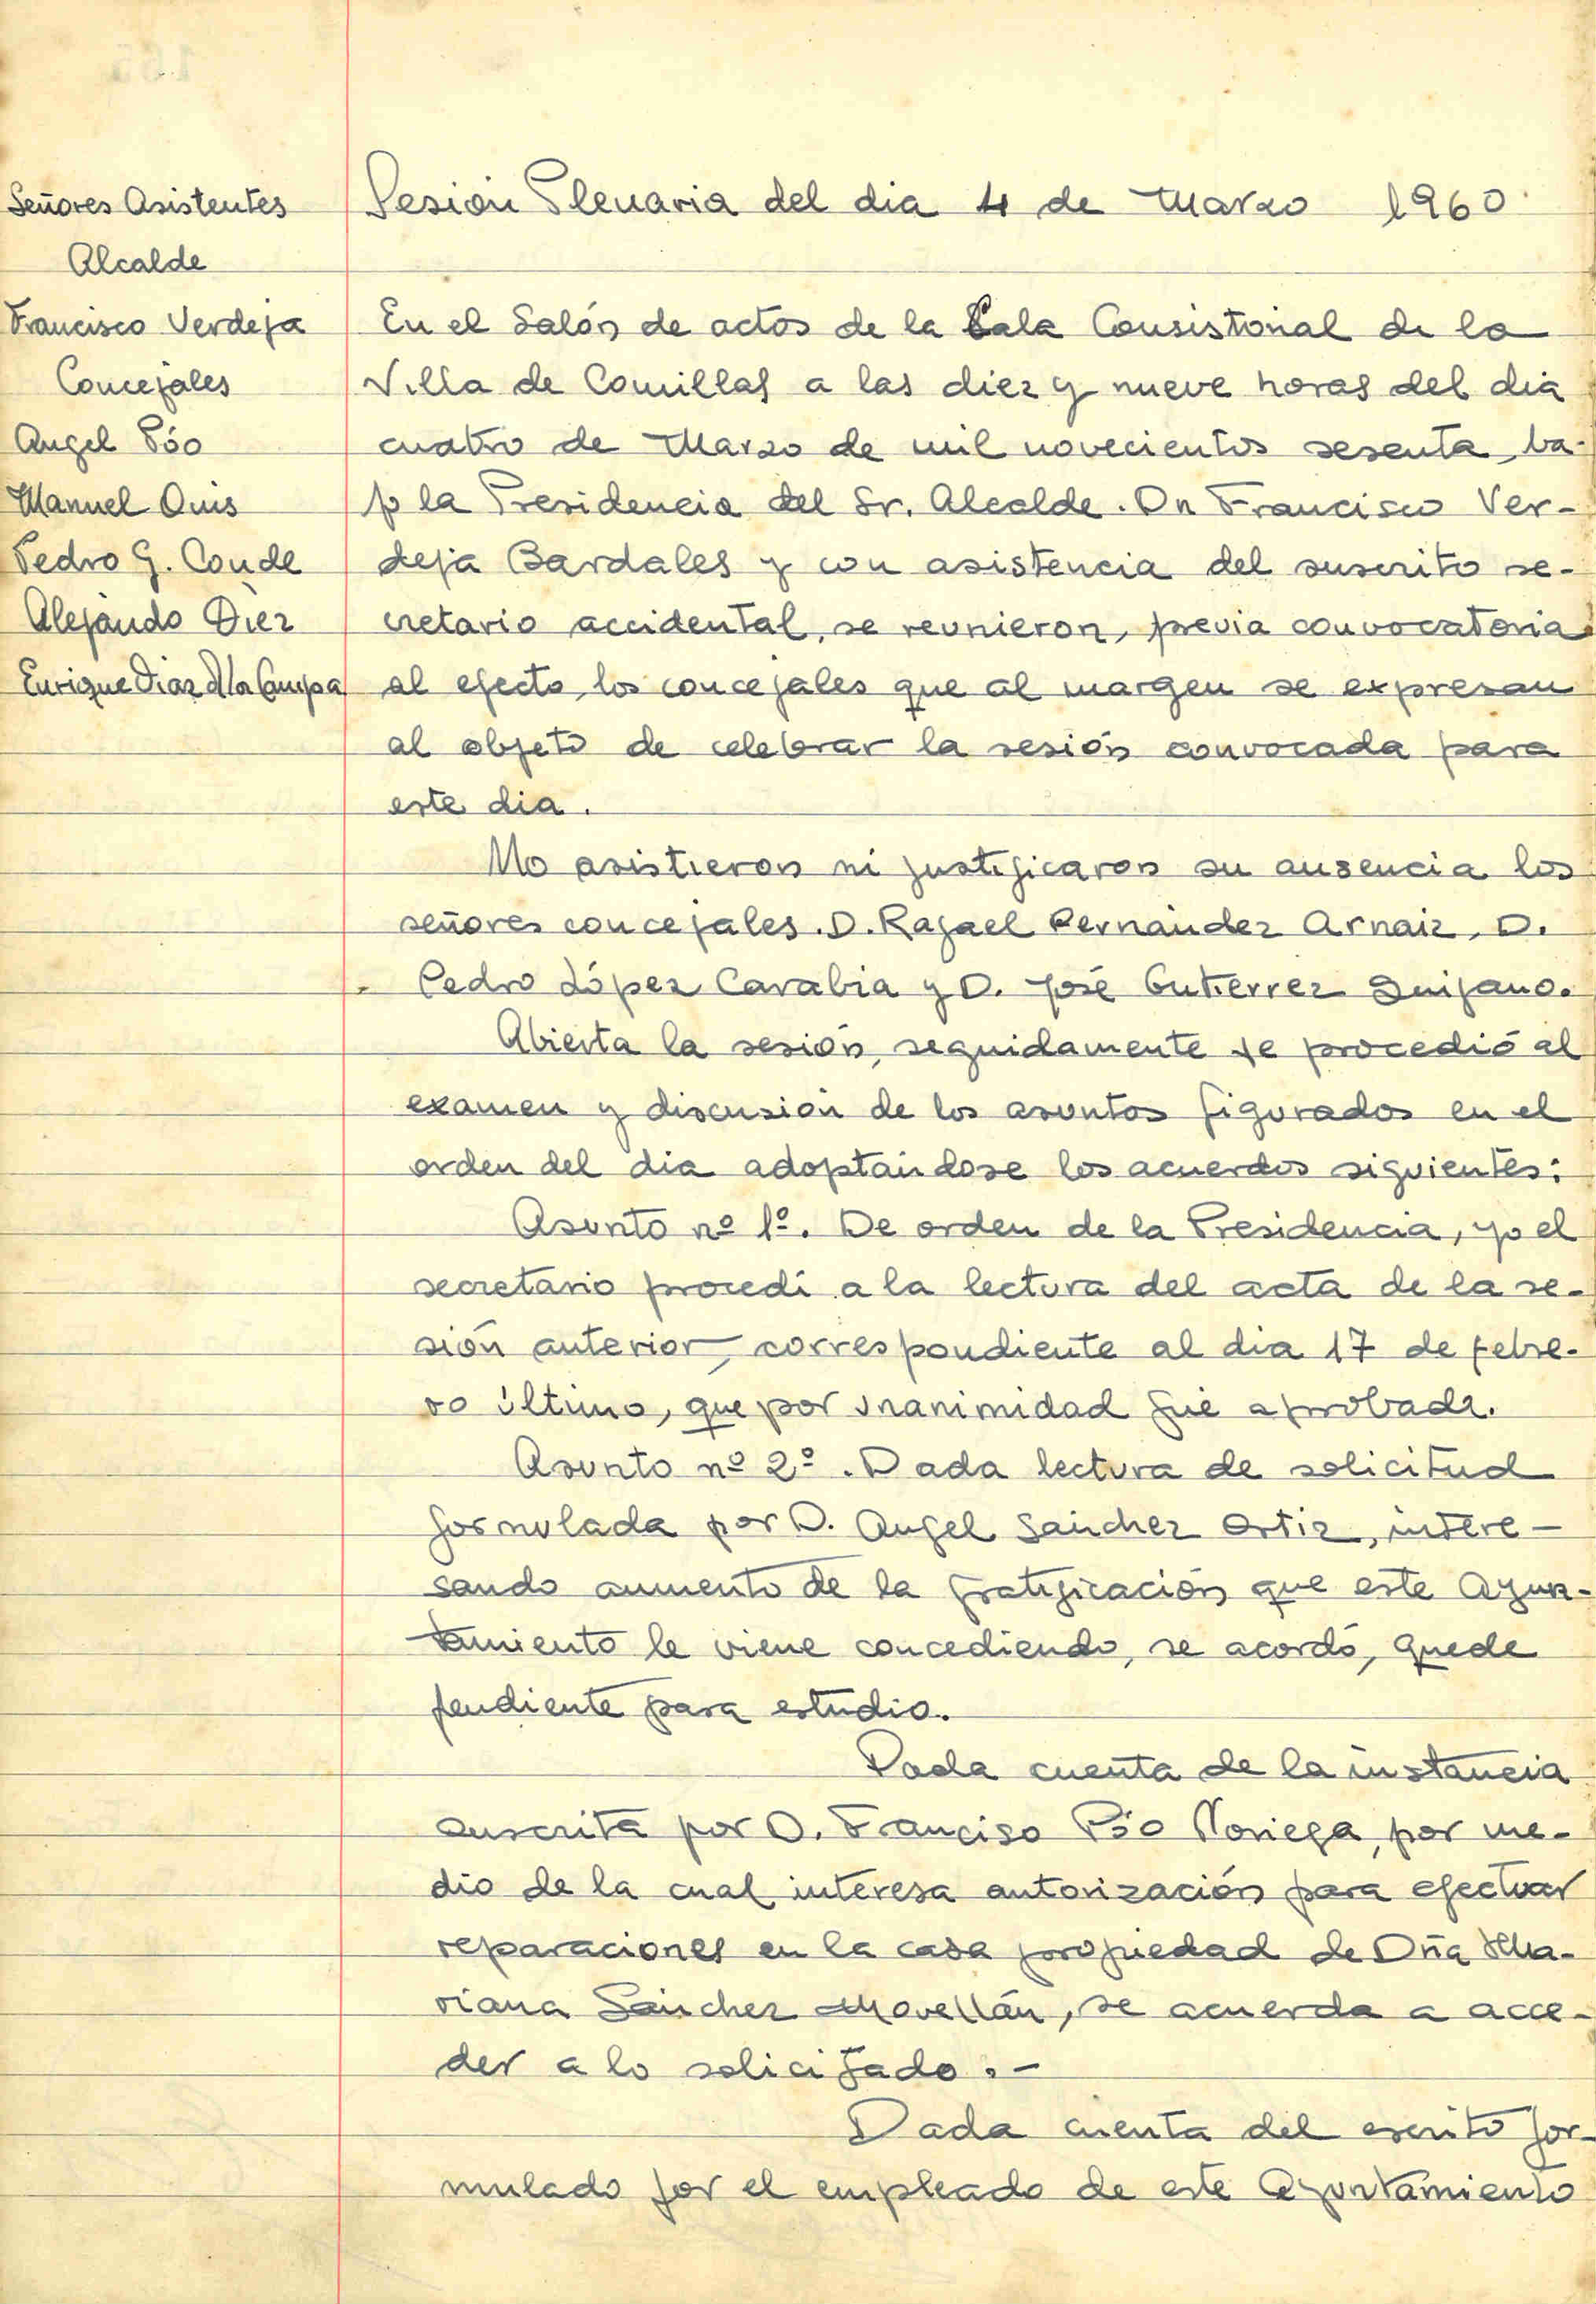 Señores Asistentes
Alcalde
Francisco Verdeja
Concejales
Angel Póo
Manuel Quis
Pedro G. Conde
Alejandro Diez
Enrique Diaz dla Campa
Sesión Plenaria del dia 4 de Marzo 1960
En el Salón de actos de la Cala Consistorial de la
Villa de Comillas a las diez y nueve horas del dia
cuatro de Marzo de mil novecientos sesenta, ba-
jo la Presidencia del Sr. Alcalde. Dn Francisco Ver-
deja Bardales y con asistencia del suscrito se-
cretario accidental, se reunieron, previa convocatoria
al efecto, los concejales que al margen se expresan
al objeto de celebrar la sesión convocada para
este dia.
No asistieron ni justificaron su ausencia los
señores concejales. D. Rafael Fernández Arnaiz, D.
Pedro López Carabia y D. José Gutierrez Quijano.
Abierta la sesión, seguidamente se procedió al
examen y discusión de los asuntos figurados en el
orden del dia adoptándose los acuerdos siguientes:
Asunto nº 1º. De orden de la Presidencia, yo el
secretario procedí a la lectura del acta de la se-
sión anterior, correspondiente al dia 17 de febre-
ro último, que por unanimidad fué aprobada.
Asunto nº 2º. Dada lectura de solicitud
formulada por D. Angel Sánchez Ortiz, intere-
sando aumento de la gratificación que este Ayun-
tamiento le viene concediendo, se acordó, quede
pendiente para estudio.
Dada cuenta de la instancia
suscrita por D. Franciso Póo Noriega, por me-
dio de la cual interesa autorización para efectuar
reparaciones en la casa propiedad de Dña Ma-
riana Sánchez Movellán, se acuerda a acce-
der a lo solicitado.-
Dada cuenta del escrito for-
mulado por el empleado de este Ayuntamiento